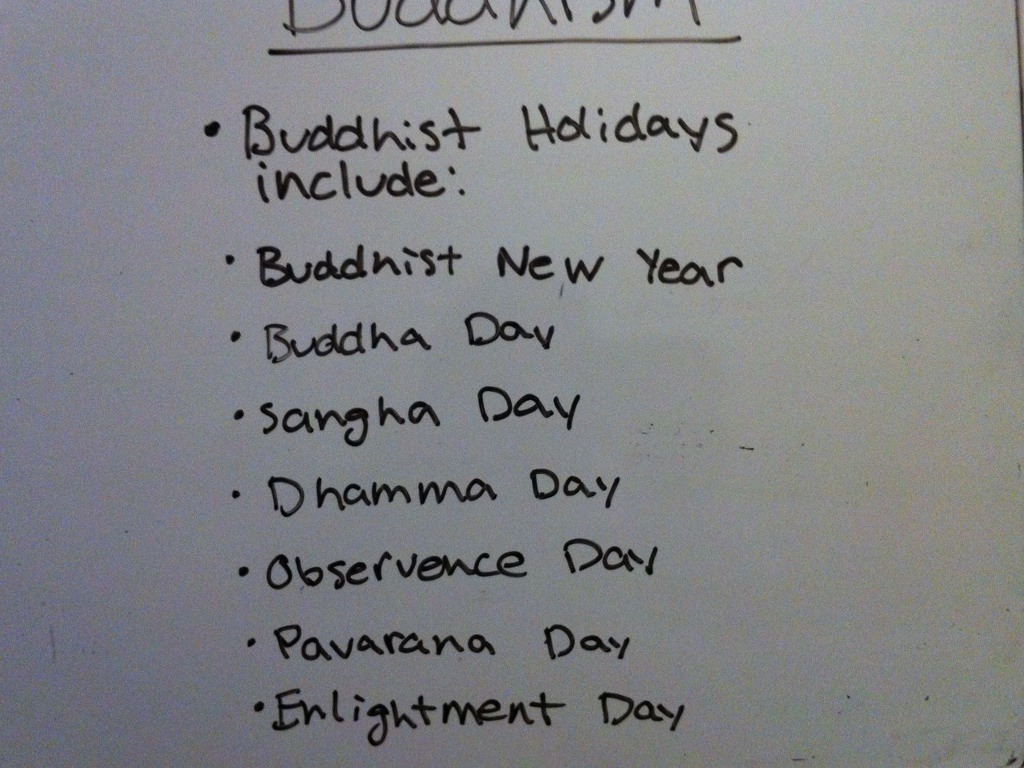 Buddhism
• Buddhist Holidays
include:
• Buddhist New Year
• Buddha Day
• Sangha Day
• Dhamma Day
• Observence Day
• Pavarana Day
• Enlightment Day